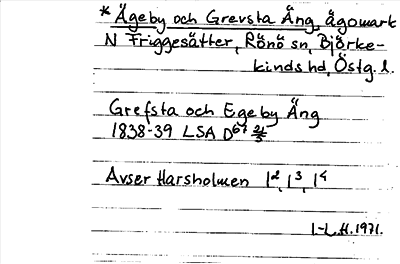 * Ägeby och Grevsta Äng, ägomark
N Friggesätter, Rönö sn, Björke-
kinds hd, Östg. l.
Grefsta och Egeby Äng
1838-39 LSA D67 21/3
Avser Harsholmen 1², 1³, 1⁴
I-L. H. 1971.